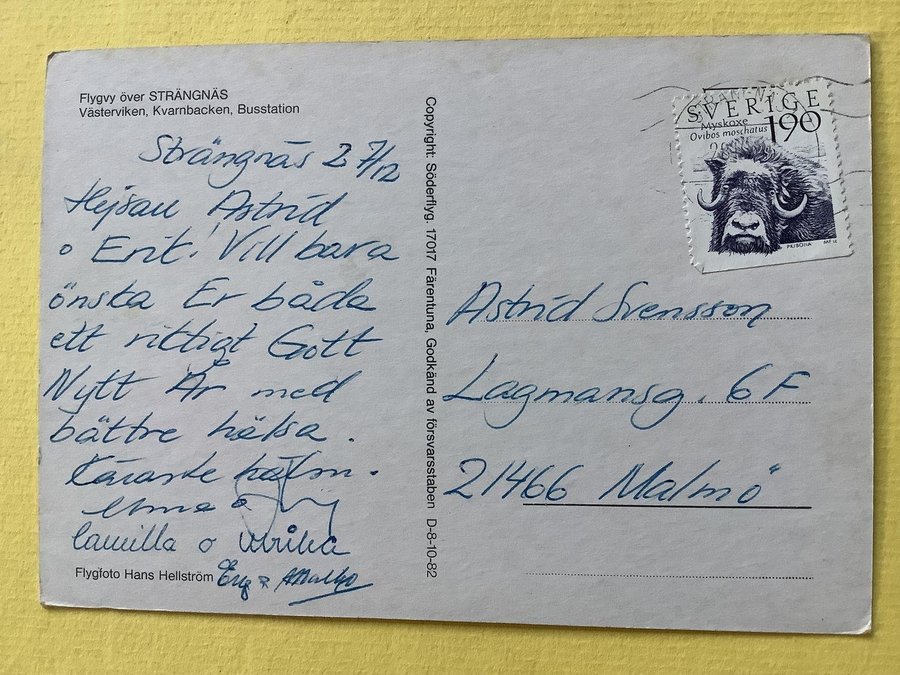 Flygvy över STRÄNGNÄS
Västerviken, Kvarnbacken, Busstation
Strängnäs 27/12
Hejsan Astrid
o Erik! Vill bara
önska Er båda
ett riktigt Gott
Nytt År med
bättre hälsa.
Käraste hälsn.
Camilla o Ulrika
Flygfoto Hans Hellström
Copyright: Söderflyg. 17017 Färentuna, Godkänd av försvarsstaben D-8-10-82
SVERIGE
Myskoxe
Ovibos moschatus
190
Astrid Svensson
Lagmansg. 6 F
21466 Malmö